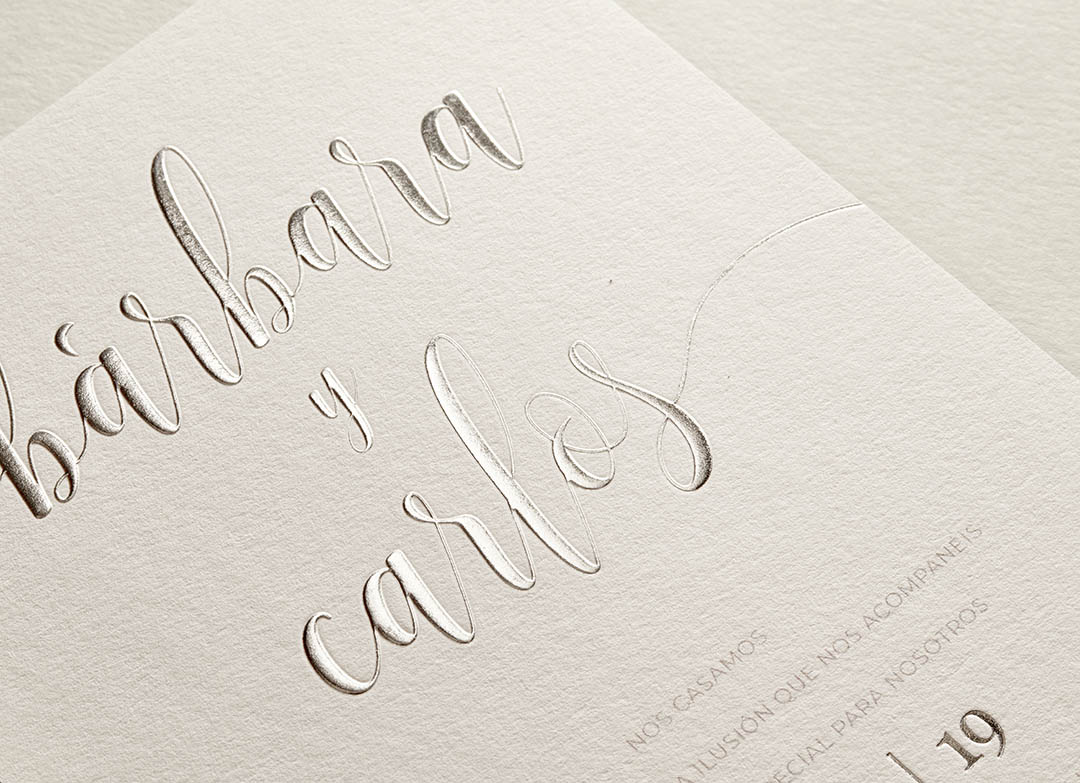 bárbara
y
carlos
NOS CASAMOS
ILUSIÓN QUE NOS ACOMPAÑEIS
PARA NOSOTROS
19